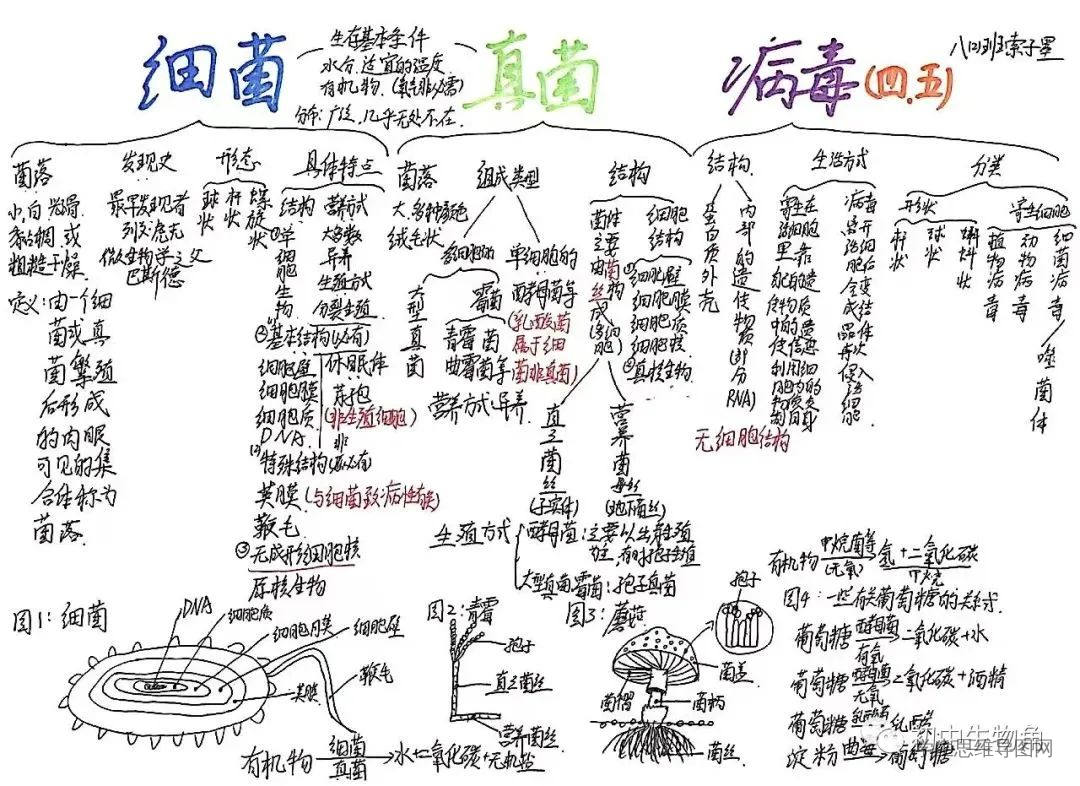 细菌
生存基本条件
水分.适宜的温度
有机物.(氧气非必需)
分布:广泛,几乎无处不在.
真菌
病毒(四.五)
菌落
小,白 光滑
黏稠 或
粗糙干燥.
定义:由一个细
菌或真
菌繁殖
后形成
的肉眼
可见的集
合体称为
菌落.
发现史
最早发现者
列文虎克
微生物学之父
巴斯德
形态
球状
杆状
螺旋状
具体特点
结构
①单细胞生物.
营养方式
大多数
异养
生殖方式
分裂生殖
②基本结构(必有)
细胞壁
细胞膜
细胞质
DNA.
休眠体
芽孢
(非生殖细胞)
特殊结构(非必有)
荚膜(与细菌致病性有关)
鞭毛
③无成形细胞核
原核生物
菌落
大.多种颜色
绒毛状
组成类型
多细胞的
大型真菌
霉菌
青霉菌
曲霉菌等
单细胞的
酵母菌等
(乳酸菌
属于细
菌非真菌)
营养方式:异养
结构
菌体主要由菌丝构成(多细胞)
细胞结构
①细胞壁
细胞膜
细胞质
细胞核
②真核生物.
直立菌丝
(子实体)
营养菌丝
(地下菌丝)
生殖方式
酵母菌:主要以出芽生殖
为主,有时孢子生殖
大型真菌,霉菌:孢子真菌
结构
蛋白质外壳
内部的遗传物质(部分RNA)
无细胞结构
生活方式
寄生在活细胞里
病毒离开活细胞后会变成结晶体
再次侵入活细胞
分类
形状
杆状
球状
蝌蚪状
寄生细胞
植物病毒
动物病毒
细菌病毒
噬菌体
图1:细菌
DNA
细胞质
细胞膜
细胞壁
荚膜
鞭毛
有机物 细菌 真菌 水+二氧化碳+无机盐
图2:青霉
孢子
直立菌丝
营养菌丝
图3:蘑菇
孢子
菌盖
菌褶
菌柄
菌丝
有机物 甲烷菌等 (无氧) 氢+二氧化碳
甲烷
图4:一些有关葡萄糖的关系式.
葡萄糖 酵母菌 有氧 二氧化碳+水
葡萄糖 酵母菌 无氧 二氧化碳+酒精
葡萄糖 乳酸菌 乳酸
淀粉 曲霉 葡萄糖
初中生物角
思维导图网